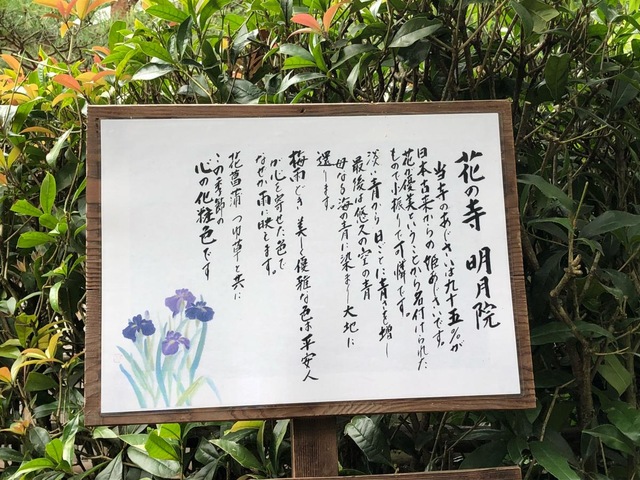 花の寺 明月院
当寺のあじさいは九十五%が
日本古来からの姫あじさいです。
花が優美ということから名付けられた
もので小振りです
淡い青から日ごとに青さを増し
最後は悠久の空の青
母なる海の青に染まし大地に
還します。
梅雨どき 美しく優雅な色は平安人
が心を寄せた色で
なぜか雨に映えます。
花菖蒲 つゆ草と共に
この季節の
心の化粧色です